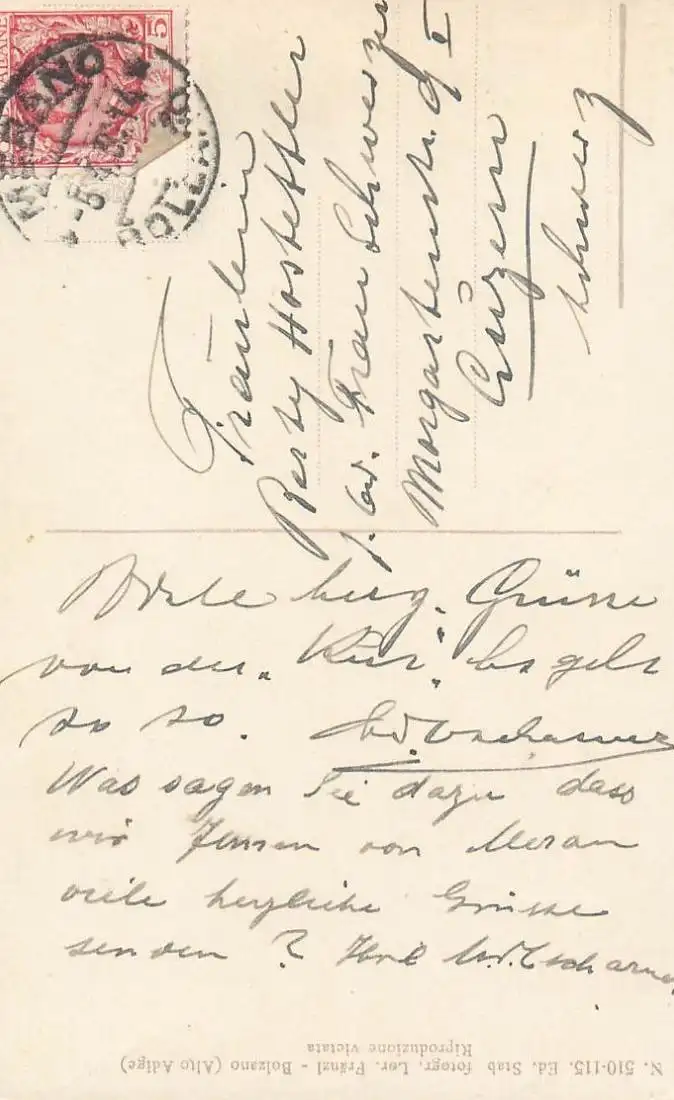 5
MERANO
BOLZANO
Fräulein
Berty Hostettler
p. Ad. Frau Schwerzer
Morgartenstr. 9 I
Luzern
Schweiz
Viele herz. Grüsse
von der „Kur". Es geht
so so. Ed. v. Tscharner
Was sagen Sie dazu dass
wir Ihnen von Meran
viele herzliche Grüsse
senden? Ihre M. v. Tscharner
N. 510-115. Ed. Stab fotogr. Lor. Fränzl - Bolzano (Alto Adige)
Riproduzione vietata